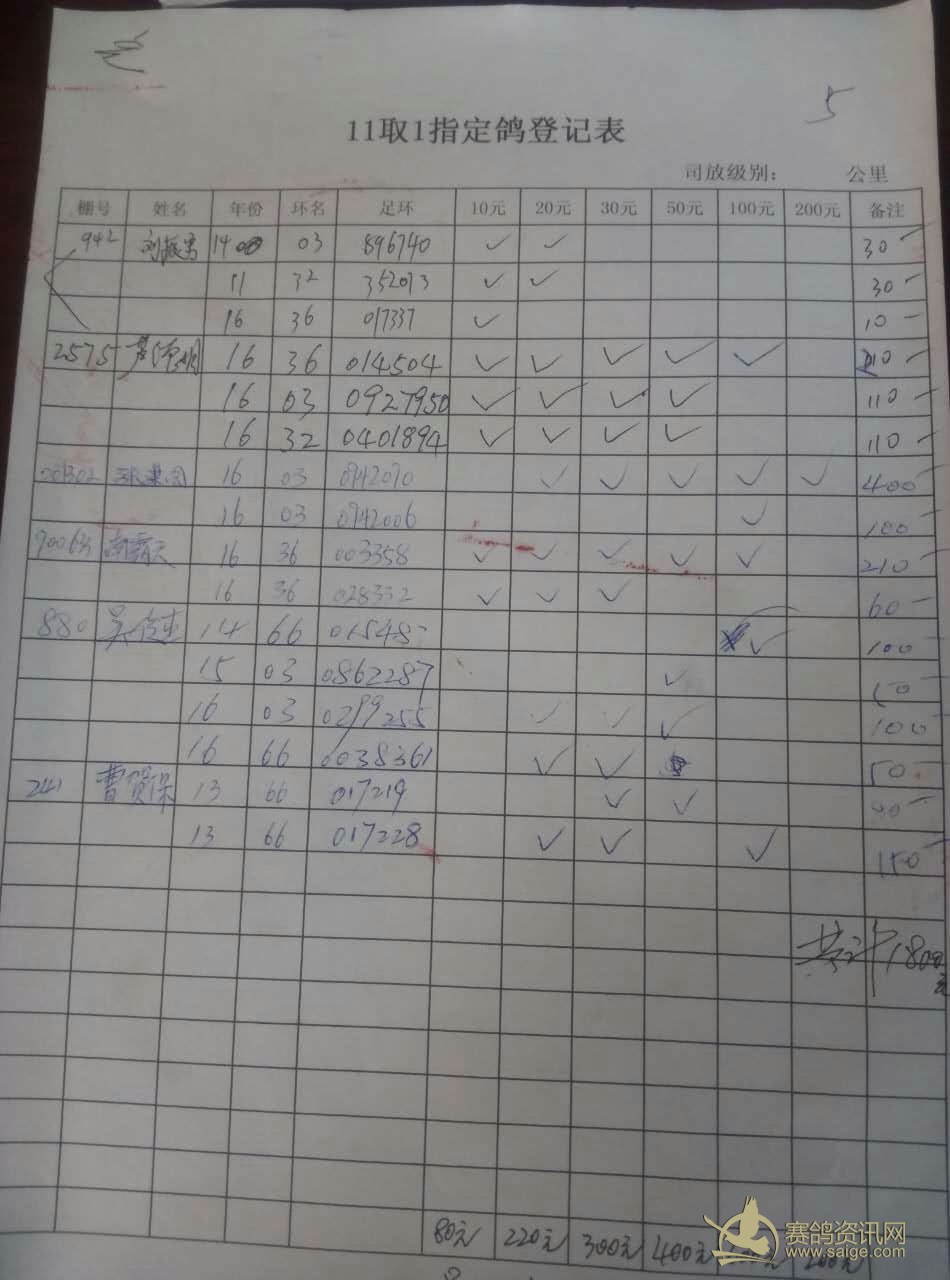 5
11取1指定鸽登记表
司放级别： 公里
棚号 姓名 年份 环名 足环 10元 20元 30元 50元 100元 200元 备注
942 14 03 896740 ✓ ✓ 30
11 32 352013 ✓ ✓ 30
16 36 017337 ✓ 10
2575 16 36 014504 ✓ ✓ ✓ ✓ ✓ 210
16 03 0927950 ✓ ✓ ✓ ✓ 110
16 32 0401894 ✓ ✓ ✓ ✓ 110
16 03 0942010 ✓ ✓ ✓ ✓ ✓ 400
16 03 0942006 ✓ 100
南霸天 16 36 003358 ✓ ✓ ✓ ✓ ✓ 210
16 36 028332 ✓ ✓ ✓ 60
880 14 66 ✓ 100
15 03 0862287 ✓ 50
16 03 0299255 ✓ ✓ ✓ 100
16 66 0038361 ✓ ✓ 50
241 曹贺保 13 66 017219 ✓ ✓ 80
13 66 017228 ✓ ✓ ✓ 150
共计1800元
80元 220元 300元 400元
赛鸽资讯网
www.saige.com